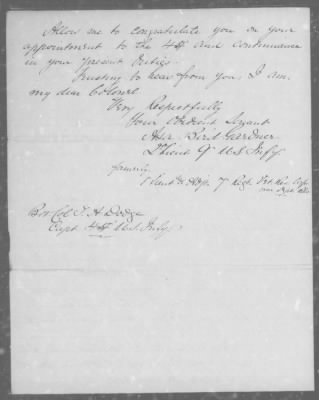 Allow me to congratulate you on your
appointment to the 44th and continuance
in your present duties.
Trusting to hear from you, I am,
my dear Colonel
Very Respectfully
Your Obedient Servant
Asa Bird Gardner
2d Lieut 9" U.S. Infy
formerly
1 Lieut & Adjt 7 Regt Vet. Res. Corps
Bvt Col. T. A. Dodge
Capt. 44th U.S. Infy.